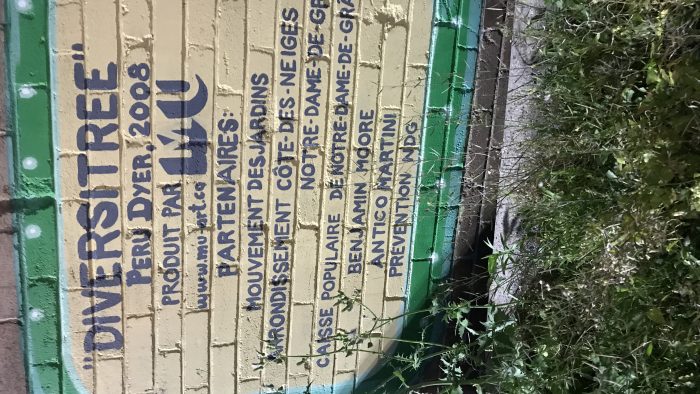 "DIVERSITREE"
PERU DYER, 2008
PRODUIT PAR MU
www.mu-art.ca
PARTENAIRES:
MOUVEMENT DESJARDINS
ARRONDISSEMENT CÔTE-DES-NEIGES
NOTRE-DAME-DE-GR
CAISSE POPULAIRE DE NOTRE-DAME-DE-GRÂ
BENJAMIN MOORE
ANTICO MARTINI
PRÉVENTION NDG